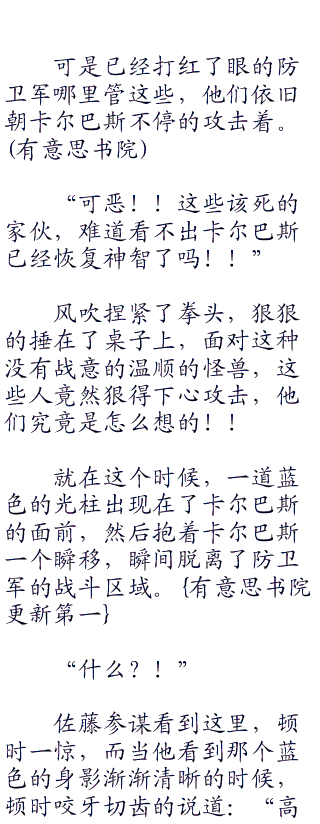 可是已经打红了眼的防
卫军哪里管这些，他们依旧
朝卡尔巴斯不停的攻击着。
(有意思书院)
“可恶！！这些该死的
家伙，难道看不出卡尔巴斯
已经恢复神智了吗！！”
风吹捏紧了拳头，狠狠
的捶在了桌子上，面对这种
没有战意的温顺的怪兽，这
些人竟然狠得下心攻击，他
们究竟是怎么想的！！
就在这个时候，一道蓝
色的光柱出现在了卡尔巴斯
的面前，然后抱着卡尔巴斯
一个瞬移，瞬间脱离了防卫
军的战斗区域。{有意思书院
更新第一}
“什么？！”
佐藤参谋看到这里，顿
时一惊，而当他看到那个蓝
色的身影渐渐清晰的时候，
顿时咬牙切齿的说道：“高